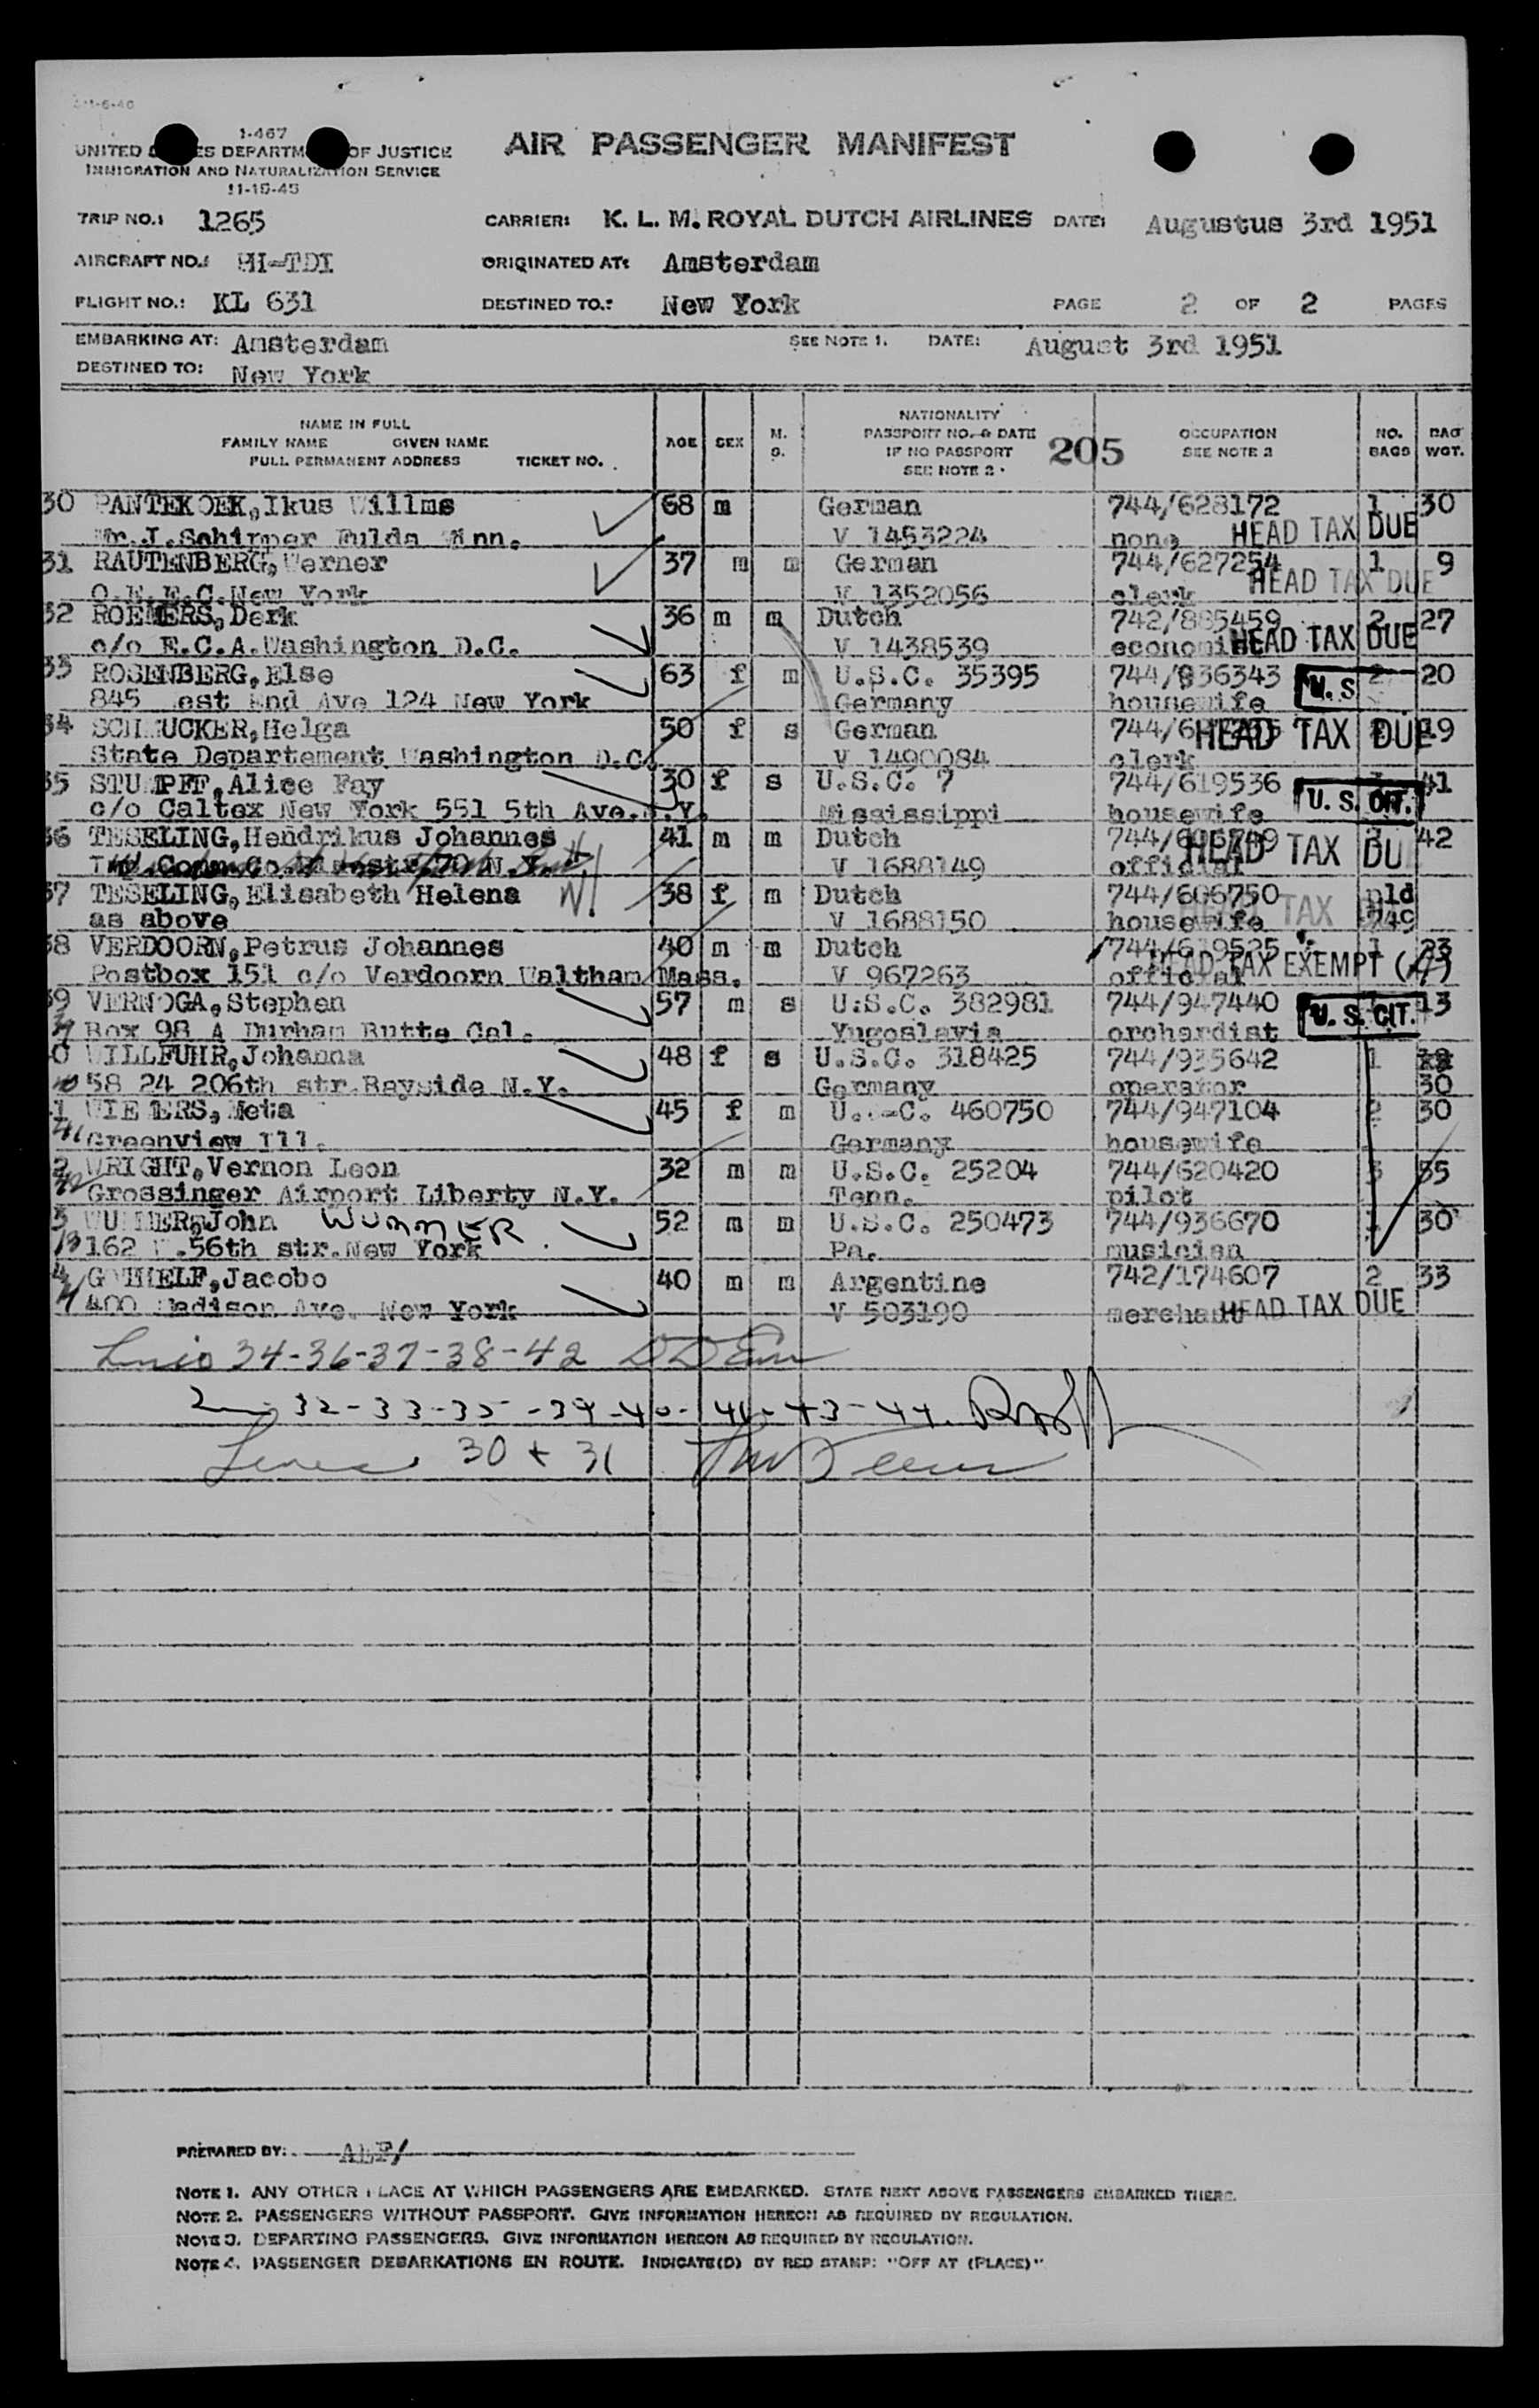 1-467
UNITED STATES DEPARTMENT OF JUSTICE
IMMIGRATION AND NATURALIZATION SERVICE
11-15-45
AIR PASSENGER MANIFEST
TRIP NO.: 1265 CARRIER: K. L. M. ROYAL DUTCH AIRLINES DATE: Augustus 3rd 1951
AIRCRAFT NO.: PH-TDI ORIGINATED AT: Amsterdam
FLIGHT NO.: KL 631 DESTINED TO.: New York PAGE 2 OF 2 PAGES
EMBARKING AT: Amsterdam SEE NOTE 1. DATE: August 3rd 1951
DESTINED TO: New York
NAME IN FULL
FAMILY NAME GIVEN NAME
FULL PERMANENT ADDRESS TICKET NO.
AGE SEX M. S.
NATIONALITY
PASSPORT NO. & DATE
IF NO PASSPORT
SEE NOTE 2
205
OCCUPATION
SEE NOTE 3
NO. BAGS BAG WGT.
30 PANTEKOEK, Ikus Willms 68 m German 744/628172 1 30
Mr.J.Schirmer Fulda Minn. V 1453224 none HEAD TAX DUE
31 RAUTENBERG, Werner 37 m m German 744/627254 1 9
O.E.E.C.New York V 1352056 clerk HEAD TAX DUE
32 ROEMERS, Derk 36 m m Dutch 742/885459 2 27
c/o E.C.A.Washington D.C. V 1438539 economist HEAD TAX DUE
33 ROSENBERG, Else 63 f m U.S.C. 35395 744/936343 2 20
845 West End Ave 124 New York Germany housewife U.S.
34 SCHMUCKER, Helga 50 f s German 19
State Departement Washington D.C. V 1490084 clerk HEAD TAX DUE
35 STUMPFF, Alice Fay 30 f s U.S.C. ? 744/619536 41
c/o Caltex New York 551 5th Ave.N.Y. Mississippi housewife U.S. CIT.
36 TESELING, Hendrikus Johannes 41 m m Dutch 42
V 1688149 official HEAD TAX DU
37 TESELING, Elisabeth Helena 38 f m Dutch 744/606750 pld
as above V 1688150 housewife TAX 749
38 VERDOORN, Petrus Johannes 40 m m Dutch 744/619525 1 23
Postbox 151 c/o Verdoorn Waltham Mass. V 967263 official HEAD TAX EXEMPT
39 VERNOGA, Stephen 57 m s U.S.C. 382981 744/947440 13
Box 98 A Durham Butte Cal. Yugoslavia orchardist U.S. CIT.
40 WILLFUHR, Johanna 48 f s U.S.C. 318425 744/935642 1
58 24 206th str.Bayside N.Y. Germany operator 30
41 WIEMERS, Meta 45 f m U.S.C. 460750 744/947104 2 30
Greenview Ill. Germany housewife
42 WRIGHT, Vernon Leon 32 m m U.S.C. 25204 744/620420 3 55
Grossinger Airport Liberty N.Y. Tenn. pilot
43 WUMMER, John WUMMER 52 m m U.S.C. 250473 744/936670 30
162 W.56th str.New York Pa. musician
44 GOTHELF, Jacobo 40 m m Argentine 742/174607 2 33
400 Madison Ave. New York V 503190 merchant HEAD TAX DUE
34-36-37-38-42
32-33-35-39-40-41-43-44
Lines 30 + 31
PREPARED BY:
NOTE 1. ANY OTHER PLACE AT WHICH PASSENGERS ARE EMBARKED. STATE NEXT ABOVE PASSENGERS EMBARKED THERE.
NOTE 2. PASSENGERS WITHOUT PASSPORT. GIVE INFORMATION HEREON AS REQUIRED BY REGULATION.
NOTE 3. DEPARTING PASSENGERS. GIVE INFORMATION HEREON AS REQUIRED BY REGULATION.
NOTE 4. PASSENGER DEBARKATIONS EN ROUTE. INDICATE(D) BY RED STAMP: "OFF AT (PLACE)"